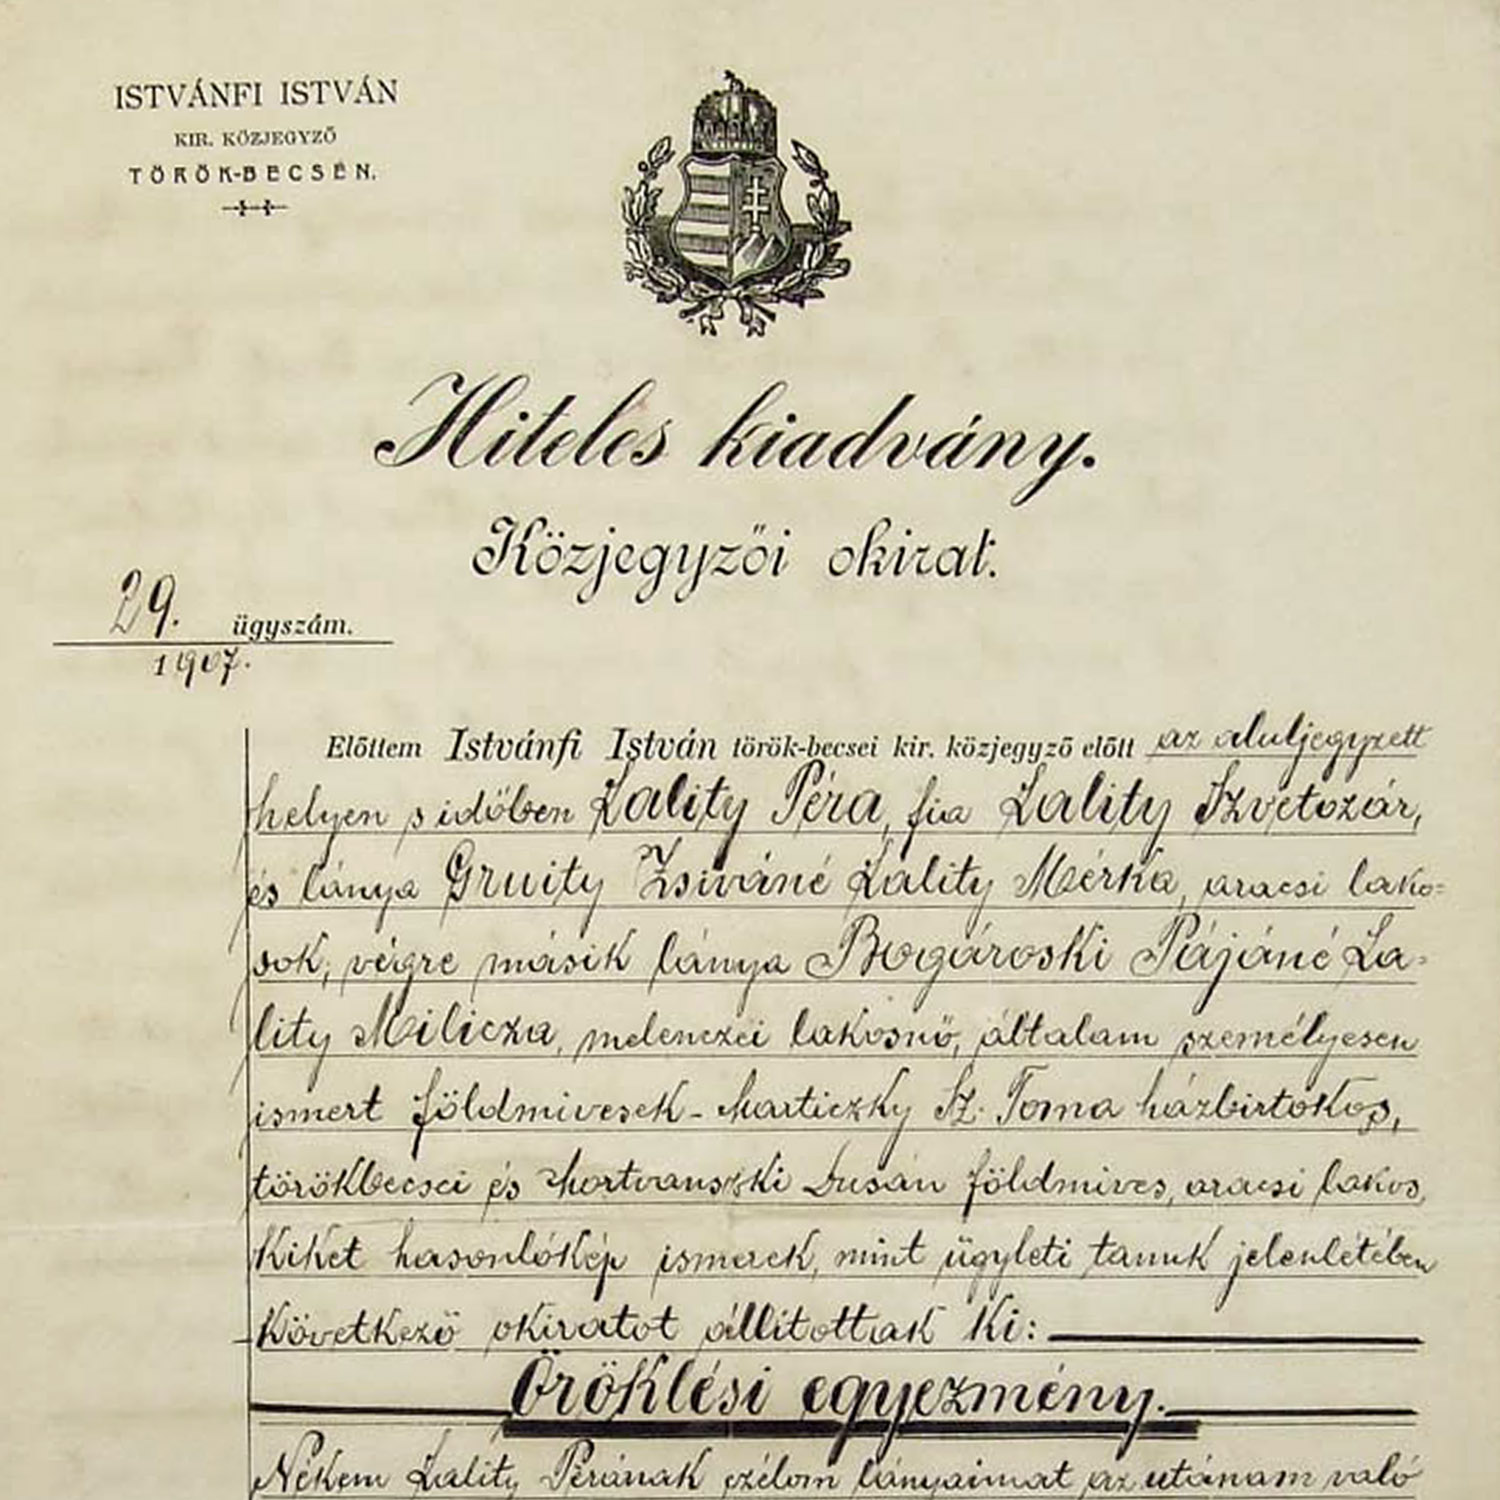 ISTVÁNFI ISTVÁN
KIR. KÖZJEGYZŐ
TÖRÖK-BECSÉN.
Hiteles kiadvány.
Közjegyzői okirat.
29. ügyszám.
1907.
Előttem Istvánfi István török-becsei kir. közjegyző előtt az aluljegyzett
helyen s időben Lality Péra, fia Lality Szvetozár,
és lánya Gruity Zsiváné Lality Mérka, aracsi lako=
sok, végre másik lánya Bogároski Pájáné La=
lity Milicza, melenczei lakosnő, általam személyesen
ismert földmivesek - Marticzky Sz. Toma házbirtokos,
törökbecsei és Dusán földmives, aracsi lakos,
kiket hasonlókép ismerek, mint ügyleti tanuk jelenlétében
következő okiratot állitottak ki:
Öröklési egyezmény.
Nékem Lality Pérának czélom lányaimat az utánam való